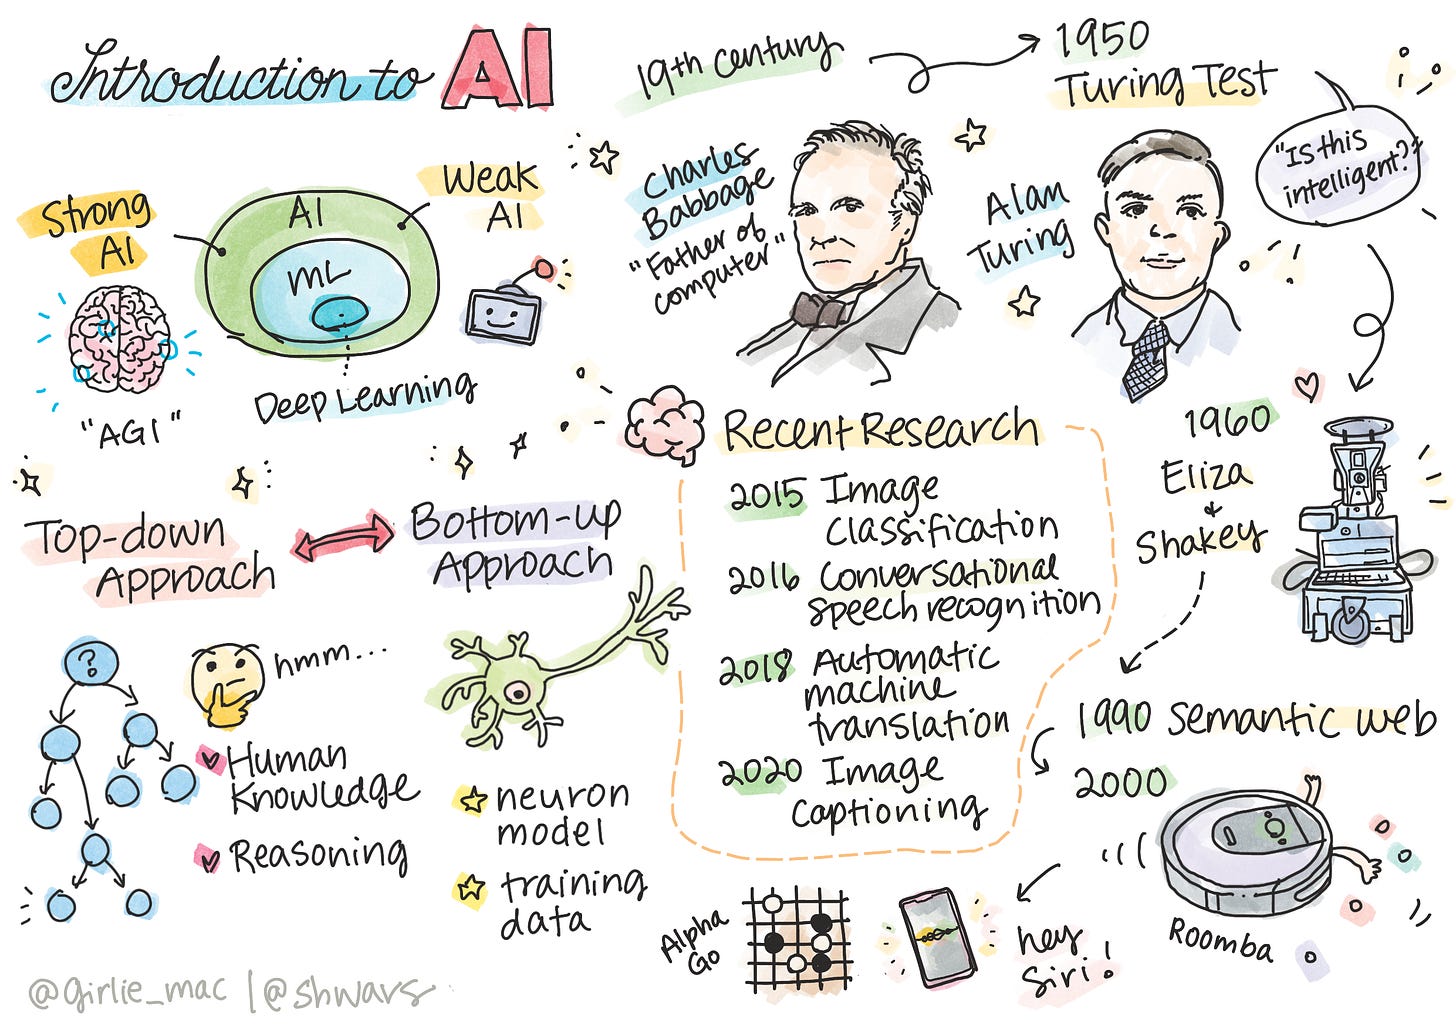 Introduction to AI
Strong
AI
"AGI"
AI
ML
Deep Learning
Weak
AI
19th century
Charles
Babbage
"Father of
computer"
1950
Turing Test
Alan
Turing
"Is this
intelligent?"
1960
Eliza
&
Shakey
1990 Semantic web
2000
Roomba
hey
Siri!
Alpha
Go
Recent Research
2015 Image
classification
2016 Conversational
speech recognition
2018 Automatic
machine
translation
2020 Image
captioning
Top-down
Approach
?
hmm...
Human
Knowledge
Reasoning
Bottom-up
Approach
neuron
model
training
data
@girlie_mac | @shwars